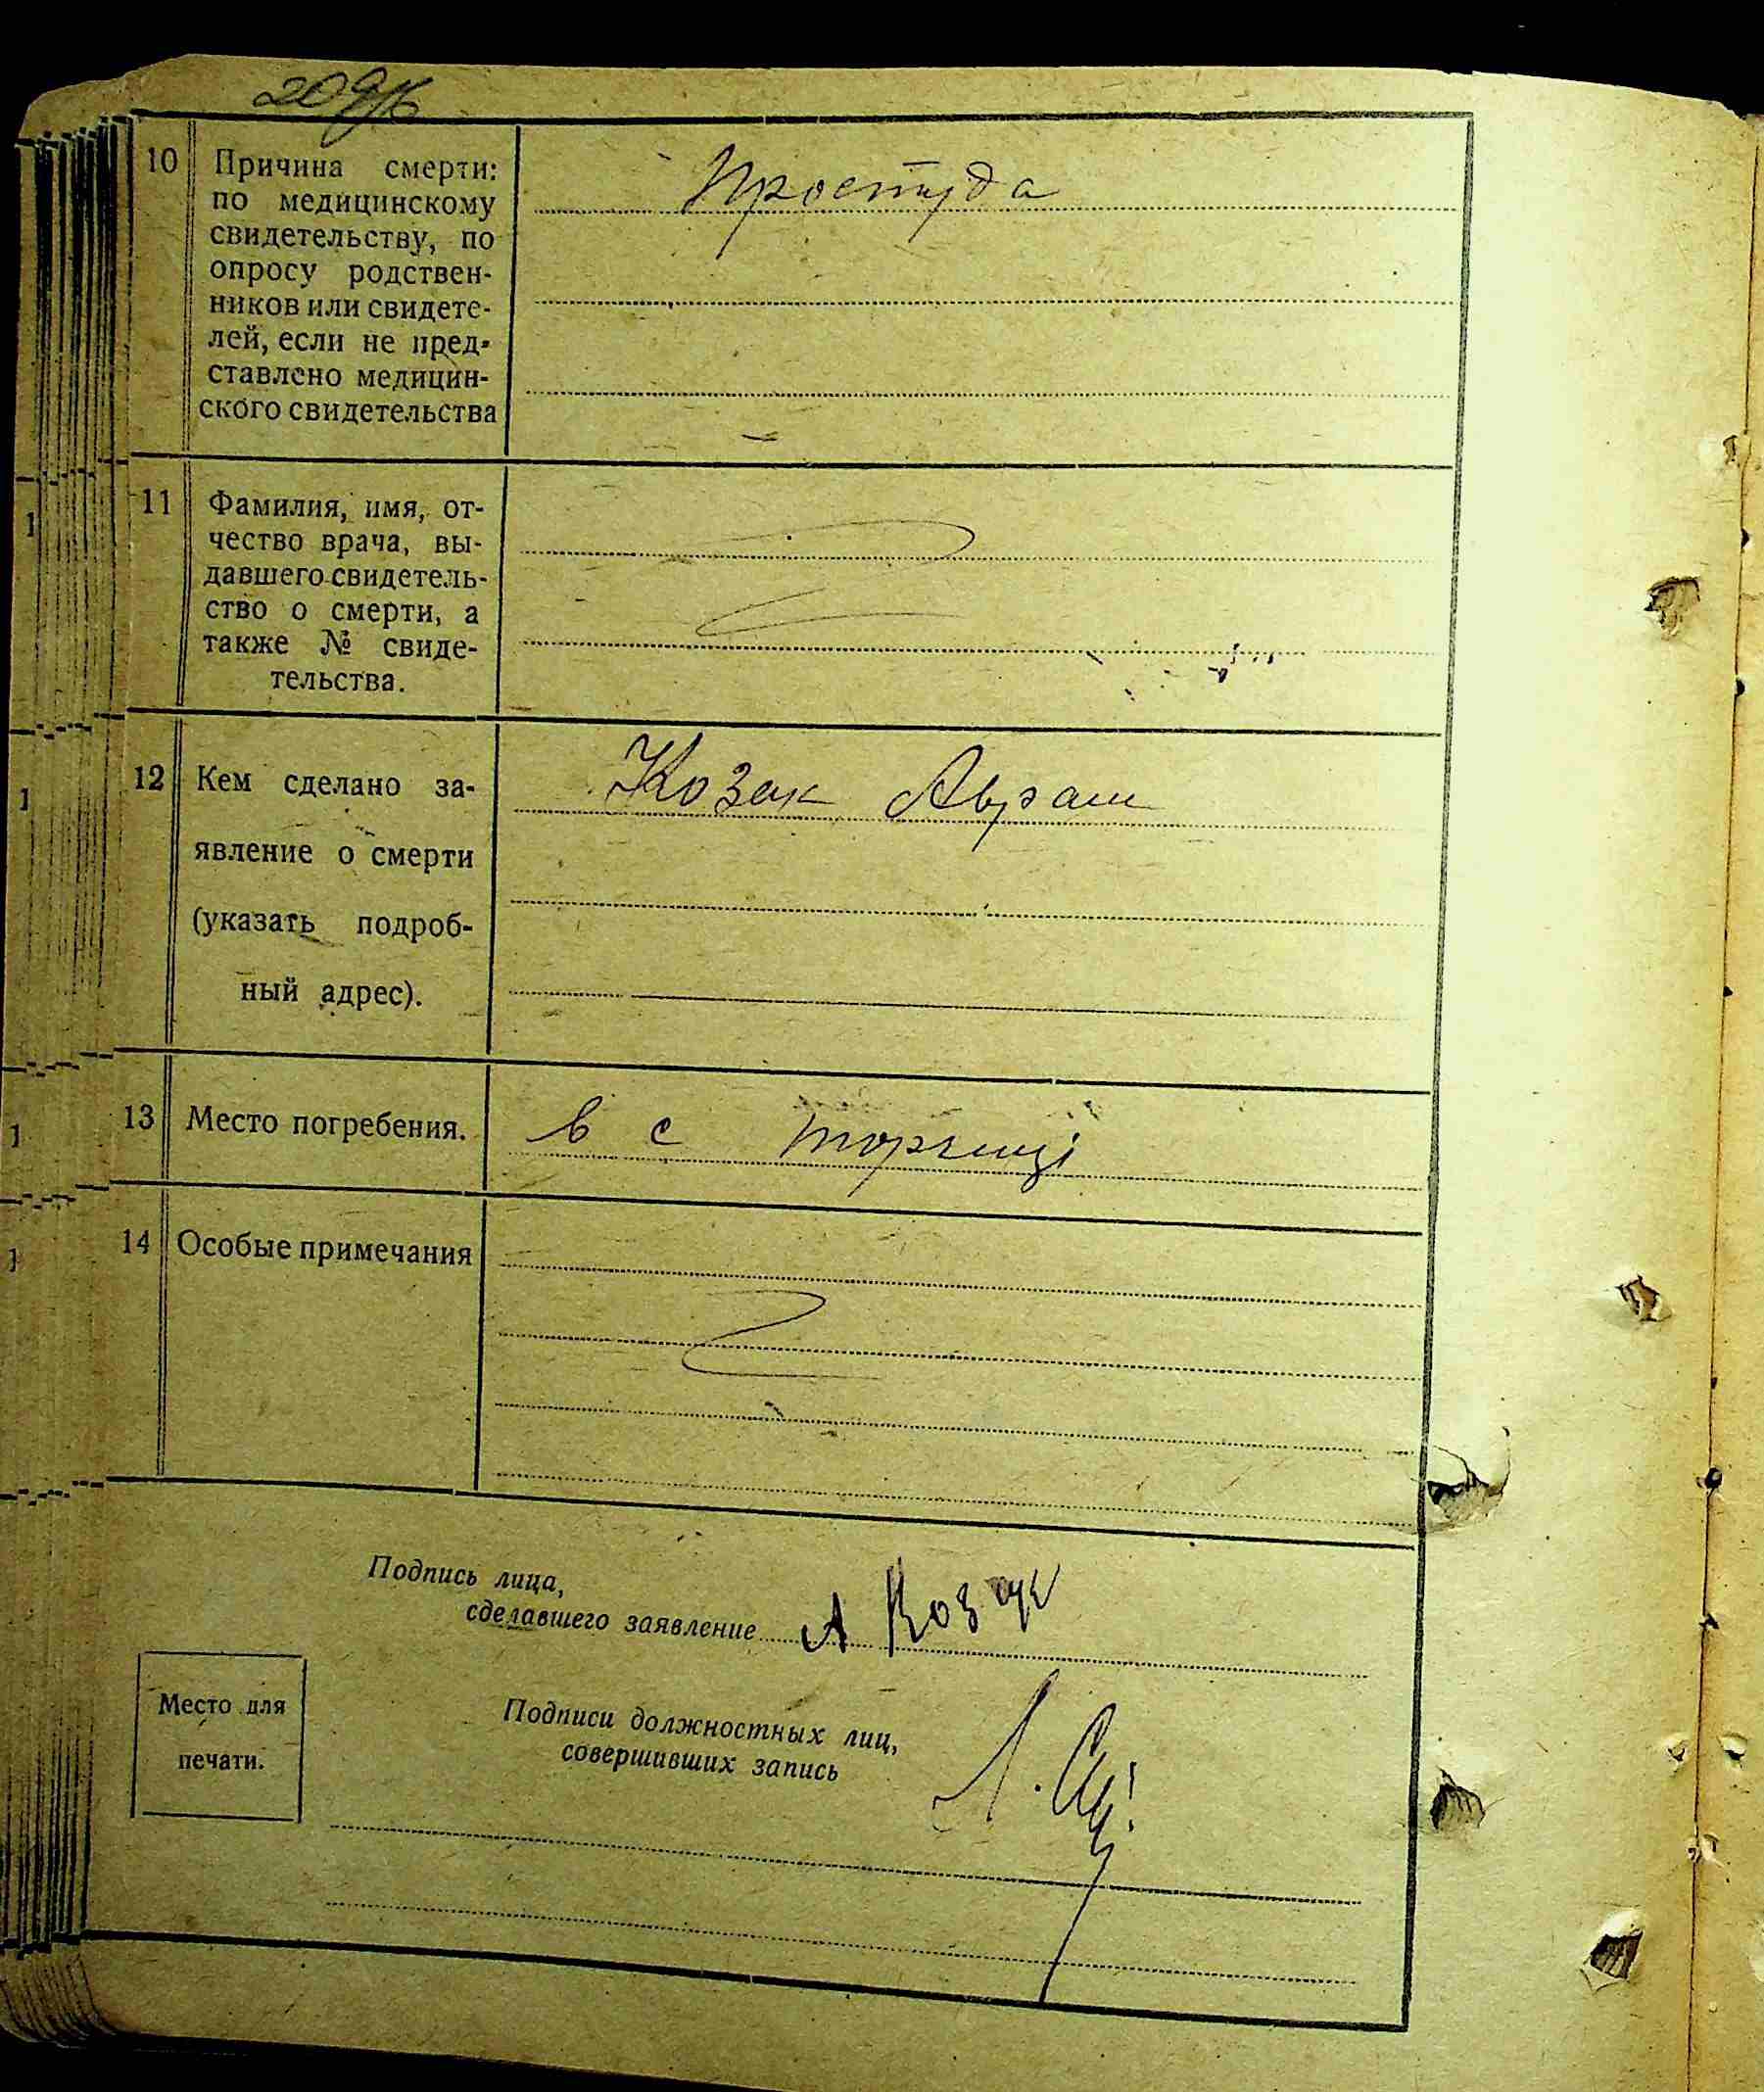 10 Причина смерти: Простуда
по медицинскому
свидетельству, по
опросу родствен-
ников или свидете-
лей, если не пред-
ставлено медицин-
ского свидетельства
11 Фамилия, имя, от-
чество врача, вы-
давшего свидетель-
ство о смерти, а
также № свиде-
тельства.
12 Кем сделано за- Козак Аврам
явление о смерти
(указать подроб-
ный адрес).
13 Место погребения. в с Торгиці
14 Особые примечания
Подпись лица,
сделавшего заявление А Козак
Место для
печати.
Подписи должностных лиц,
совершивших запись